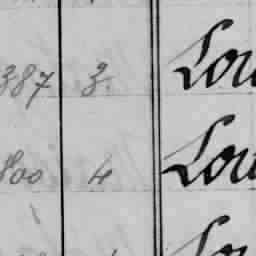 387 3 Lou
800 4 Lou